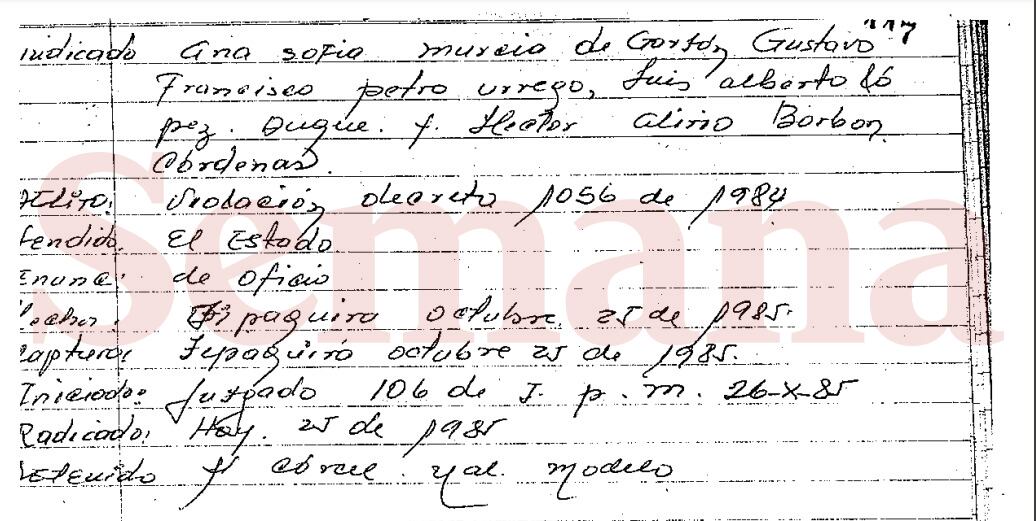 117
indicado Ana sofia murcia de Gastón, Gustavo
Francisco petro urrego, Luis alberto ló
pez. Duque. y. Hector alirio Borbon
Cárdenas.
Violación decreto 1056 de 1984
fendido. El Estado.
Enunc: de oficio
Zipaquira octubre. 25 de 1985.
Captura: Zipaquirá octubre 25 de 1985.
Iniciado: Juzgado 106 de I. p. m. 26-X-85
Radicado: Hoy. 25 de 1985
Detenido y cárcel. modelo
Semana